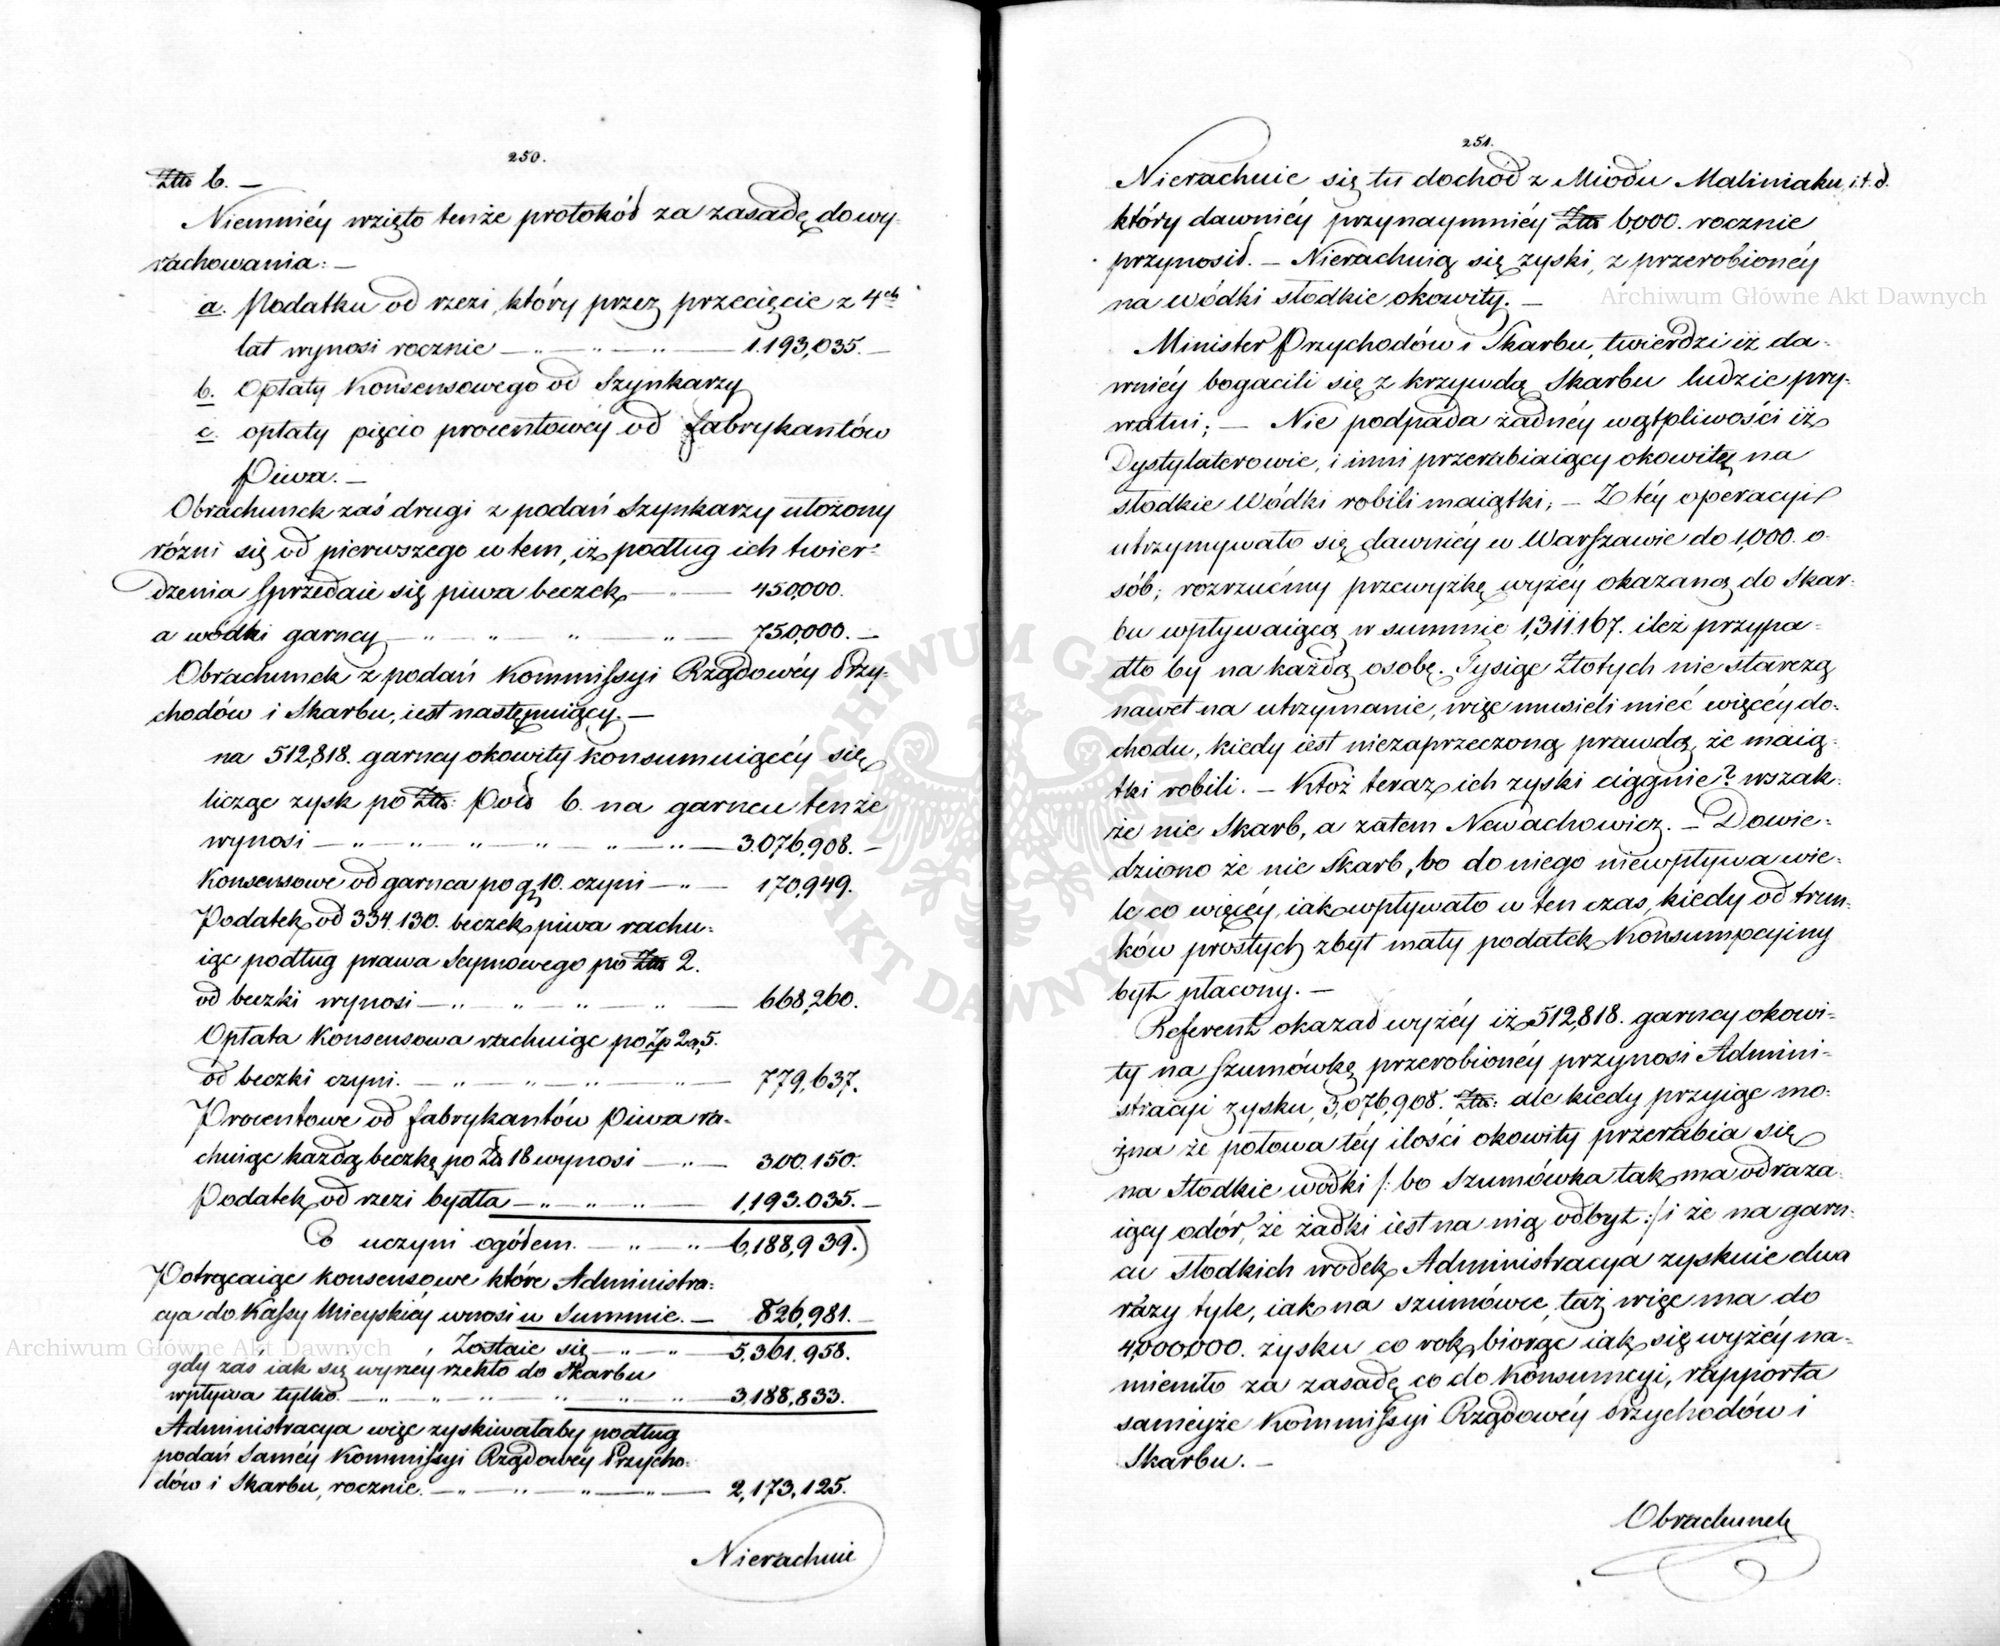 250.
Złtt 6. —
Niemniéy wzięto tenże protokół za zasadę do wy-
rachowania: —
a. Podatku od rzezi, który przez przecięcie z 4ch
lat wynosi rocznie — „ — „ — „ — 1.193,035. —
b. Opłaty Konsensowego od Szynkarzy
c. opłaty pięcio procentowéy od fabrykantów
Piwa. —
Obrachunek zaś drugi z podań Szynkarzy ułożony
różni się od pierwszego w tem, iż podług ich twier-
dzenia sprzedaie się piwa beczek — „ — 450,000.
a wódki garncy — „ — „ — „ — „ — 750,000. —
Obrachunek z podań Kommissyi Rządowéy Przy-
chodów i Skarbu, iest następuiący. —
na 512,818. garncy okowity konsumuiącéy się
licząc zysk po Złtt: Pol: 6. na garncu tenże
wynosi — „ — „ — „ — „ — „ — „ — 3.076,908. —
Konsensowe od garnca po g 10. czyni — „ — 170,949.
Podatek od 334.130. beczek piwa rachu-
iąc podług prawa Seymowego po Złtt 2.
od beczki wynosi — „ — „ — „ — „ — 668,260.
Opłata Konsensowa rachuiąc po Zp 2 g, 5.
od beczki czyni. — „ — „ — „ — „ — 779,637.
Procentowe od fabrykantów Piwa ra-
chuiąc każdą beczkę po Zł 18 wynosi — „ — 300.150.
Podatek od rzezi bydła — „ — „ — „ — 1,193.035. —
Co uczyni ogółem. — „ — „ — 6,188,939.
Potrącaiąc konsensowe które Administra-
cya do Kassy Mieyskiéy wnosi w Summie. — 826,981. —
Zostaie się — „ — „ — 5,361.958.
gdy zaś iak się wyżey rzekło do Skarbu
wpływa tylko. — „ — „ — „ — „ — „ — 3,188,833.
Administracya więc zyskiwałaby podług
podań saméy Kommissyi Rządowéy Przycho-
dów i Skarbu, rocznie. — „ — „ — „ — „ — 2,173,125.
Nierachuie
251.
Nierachuie się tu dochód z Miodu Maliniaku, i.t.d.
który dawniéy przynaymniéy Złtt 6,000. rocznie
przynosił. — Nierachuią się zyski, z przerobionéy
na wódki słodkie okowity. —
Minister Przychodów i Skarbu, twierdzi iż da-
wniéy bogacili się z krzywdą Skarbu ludzie pry-
watni; — Nie podpada żadnéy wątpliwości iż
Dystylaterowie, i inni przerabiaiący okowitę na
słodkie Wódki robili maiątki; — Z téy operacyi
utrzymywało się dawniéy w Warszawie do 1,000. o-
sób; rozrzućmy przewyżkę wyżéy okazaną do Skar-
bu wpływaiącą w summie 1,311.167. ileż przypa-
dło by na każdą osobę. Tysiąc Złotych nie starczą
nawet na utrzymanie, więc musieli mieć więcéy do-
chodu, kiedy iest niezaprzeczoną prawdą, że maią-
tki robili. — Ktoż teraz ich zyski ciągnie? wszak-
że nie Skarb, a zatem Newachowicz. — Dowie-
dziono że nie Skarb, bo do niego niewpływa wie-
le co więcéy, iak wpływało w ten czas, kiedy od trun-
ków prostych zbyt mały podatek Konsumpcyiny
był płacony. —
Referent okazał wyżéy iż 512,818. garncy okowi-
ty na szumówkę przerobionéy przynosi Admini-
stracyi zysku, 3,076,908. Złtt: ale kiedy przyiąc mo-
żna że połowa téy ilości okowity przerabia się
na słodkie wódki /: bo szumówka tak ma odraża-
iący odór, że żadki iest na nią odbyt :/ i że na garn-
cu słodkich wódek Administracya zyskuie dwa
razy tyle, iak na szumówce, taż więc ma do
4,000,000. zysku co rok, biorąc iak się wyżéy na-
mieniło za zasadę co do Konsumcyi, rapporta
saméyże Kommissyi Rządowéy Przychodów i
Skarbu. —
Obrachunek
Archiwum Główne Akt Dawnych
Archiwum Główne Akt Dawnych
ARCHIWUM GŁÓWNE AKT DAWNYCH